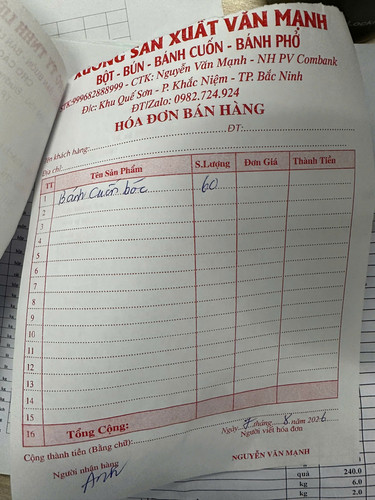 XƯỞNG SẢN XUẤT VĂN MẠNH
BỘT - BÚN - BÁNH CUỐN - BÁNH PHỞ
STK:999682888999 - CTK: Nguyễn Văn Mạnh - NH PV Combank
Đ/c: Khu Quế Sơn - P. Khắc Niệm - TP. Bắc Ninh
ĐT/Zalo: 0982.724.924
HÓA ĐƠN BÁN HÀNG
khách hàng: ĐT:
Địa chỉ:
TT Tên Sản Phẩm S.Lượng Đơn Giá Thành Tiền
1 Bánh Cuốn bóc 60
2
3
4
5
6
7
8
9
10
11
12
13
14
15
16 Tổng Cộng:
Cộng thành tiền (Bằng chữ):
Ngày 7 tháng 8 năm 2026
Người nhận hàng Người viết hóa đơn
Anh
NGUYỄN VĂN MẠNH
quả 240.0
kg 6.0
kg 2.0